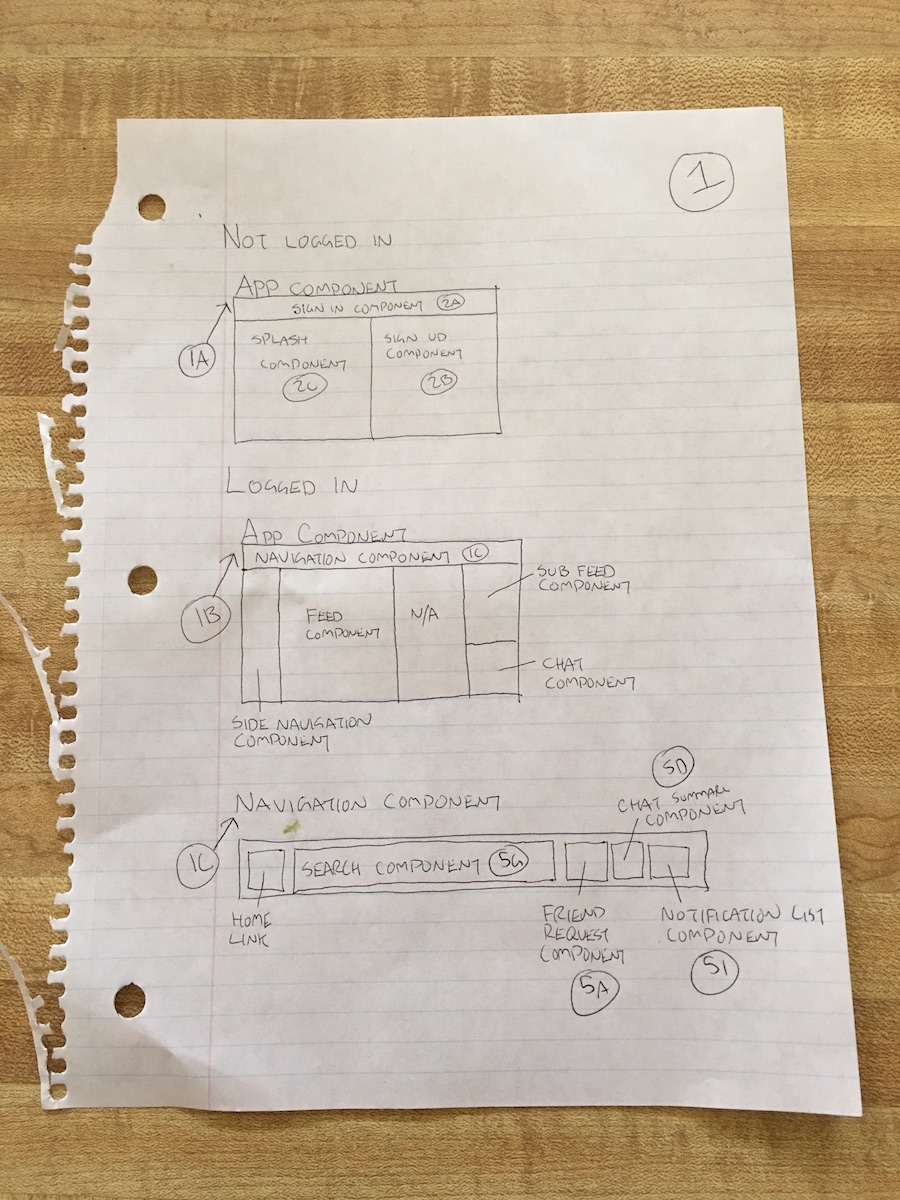 1
NOT LOGGED IN
APP COMPONENT
1A
SIGN IN COMPONENT 2A
SPLASH
COMPONENT
2C
SIGN UP
COMPONENT
2B
LOGGED IN
APP COMPONENT
1B
NAVIGATION COMPONENT 1C
FEED
COMPONENT
N/A
SUB FEED
COMPONENT
CHAT
COMPONENT
SIDE NAVIGATION
COMPONENT
NAVIGATION COMPONENT
1C
5D
CHAT SUMMARY
COMPONENT
SEARCH COMPONENT 5G
HOME
LINK
FRIEND
REQUEST
COMPONENT
5A
NOTIFICATION LIST
COMPONENT
5I